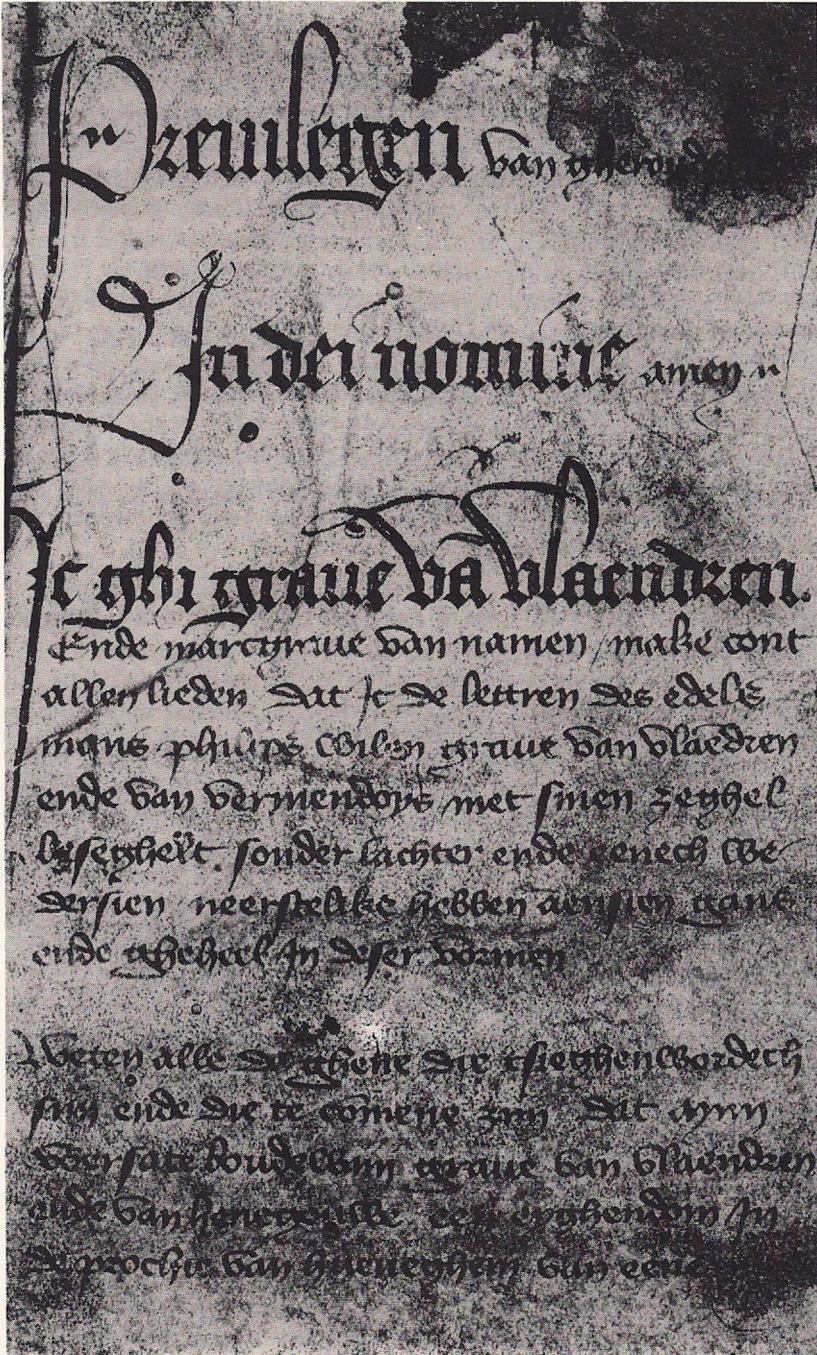 Preuilegen van ghero
In dei nomine amen
Ic ghi graue vā vlaendren.
Ende marcgraue van namen / make cont
allen lieden dat Ic de lettren des edels
mans philips graue van vlaēdren
ende van vermendoys met sinen zeghel
beseghelt. sonder lachter ende eenech we
dersien neerstelike hebben aensien gans
ende gheheel In deser vormen
Weten alle de ghene die
sijn ende die te comene zijn dat mijn
voersate boudewijn graue van vlaendren
ende van henegouwe een eyghendom In
de prochie van van eene